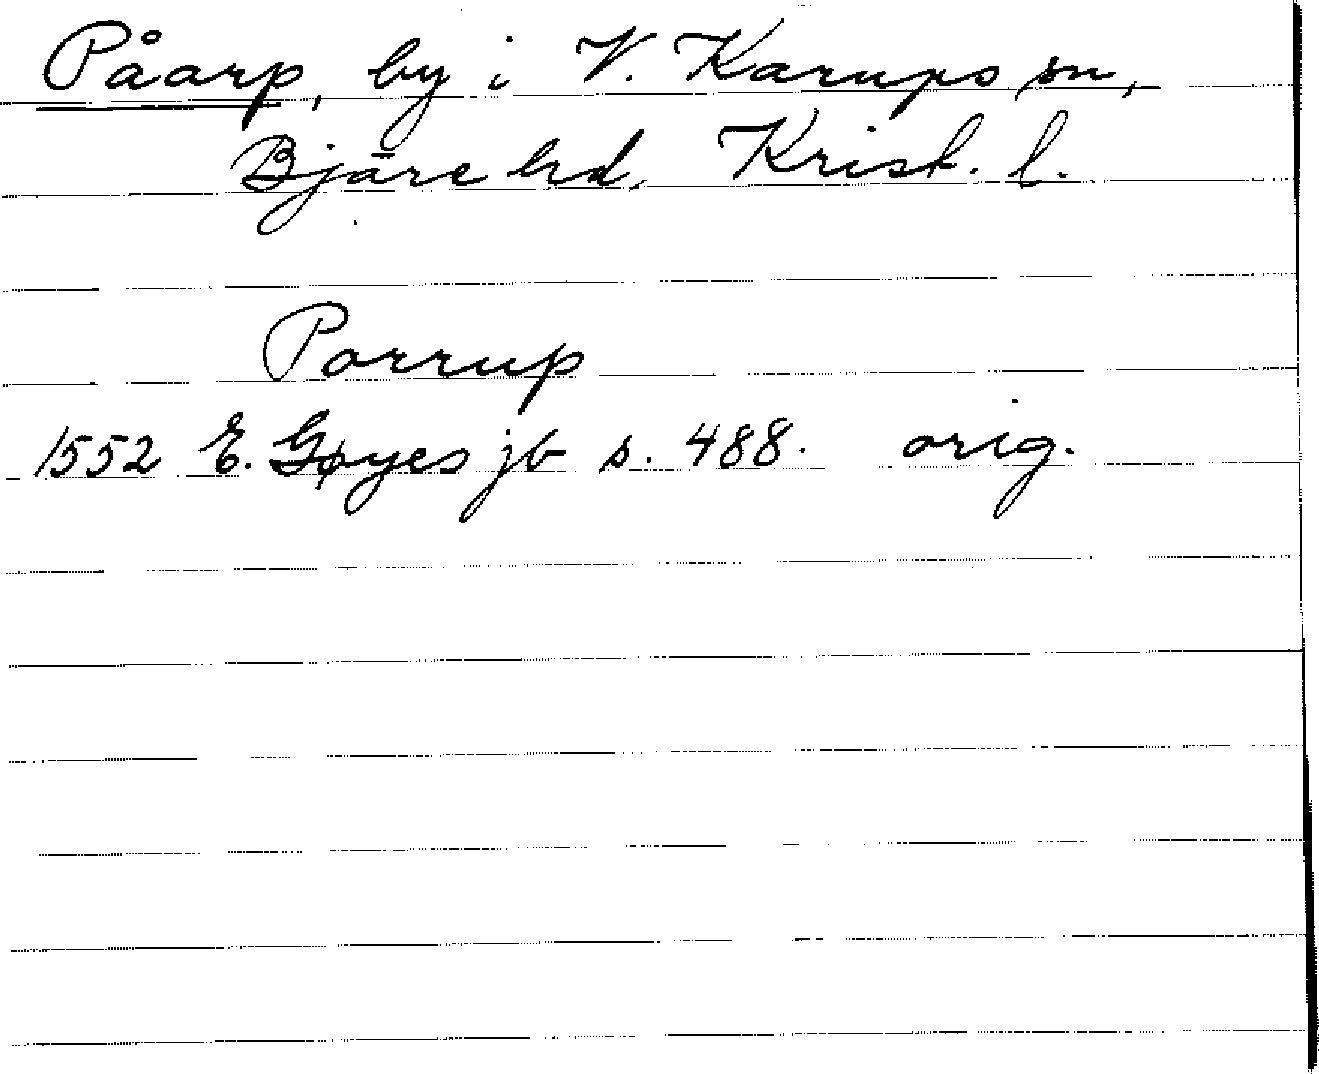 Påarp, by i V. Karups sn,
Bjäre hd, Krist. l.
Porrup
1552 E. Gøyes jb s. 488. orig.